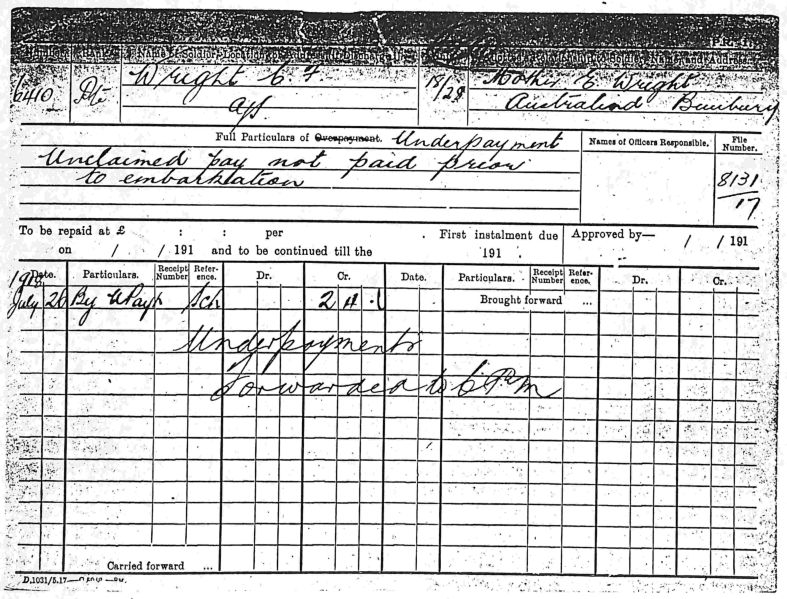 P.R. 11.
Number. Rank. Name of Soldier
6410 Pte Wright C F 18/28 Mother E Wright
Australind Bunbury
Full Particulars of Overpayment. Underpayment Names of Officers Responsible. File Number.
Unclaimed pay not paid prior
to embarkation 8131/17
To be repaid at £ : : per . First instalment due Approved by— / / 191
on / / 191 and to be continued till the 191 .
Date. Particulars. Receipt Number Reference. Dr. Cr. Date. Particulars. Receipt Number Reference. Dr. Cr.
1918
July 26 By UPay Sch 2 Brought forward ...
Underpayments
forwarded to
Carried forward ...
D.1031/5.17—